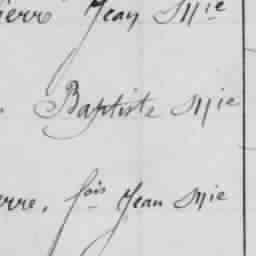 ierre Jean Mie
Baptiste Mie
erre, fois Jean Mie